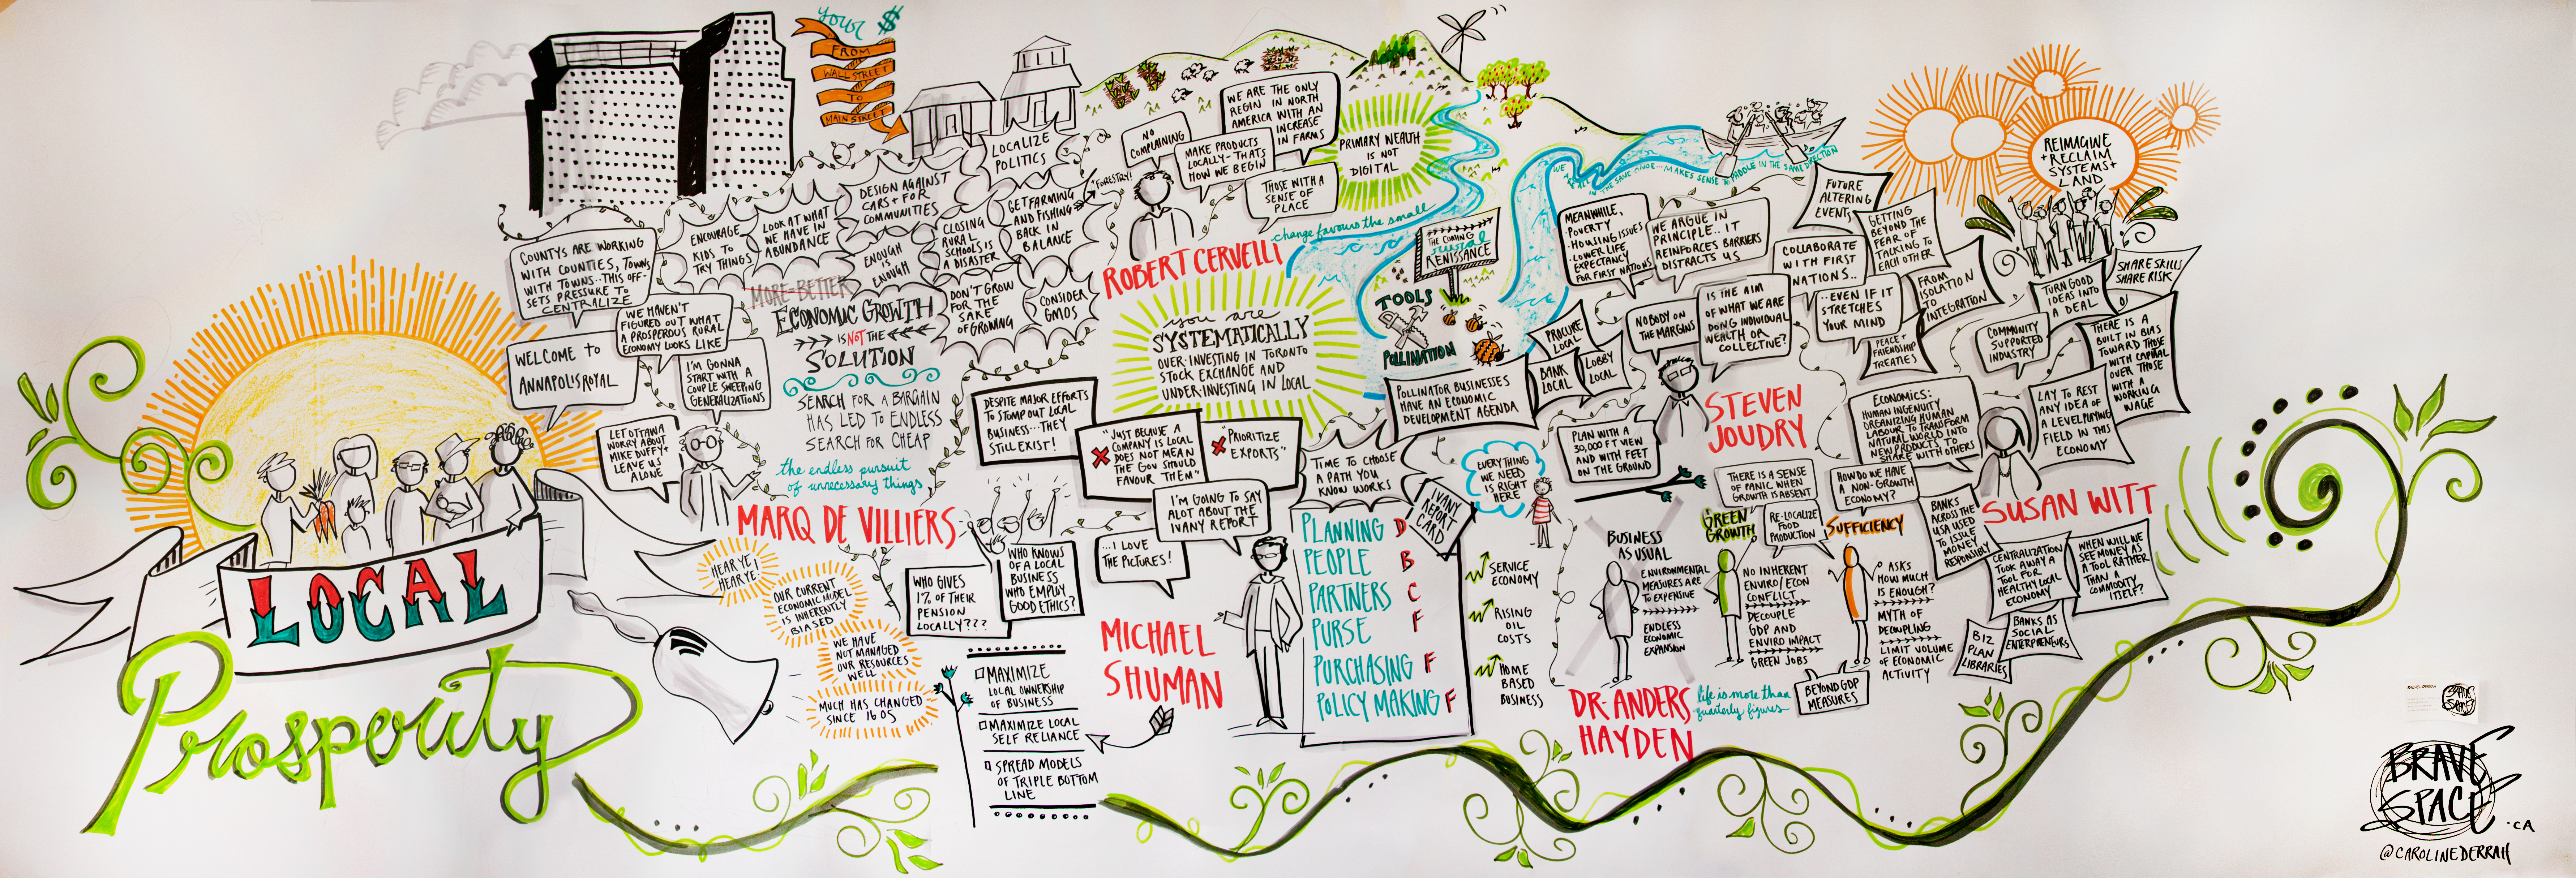 LOCAL
Prosperity
your $
FROM
WALL STREET
TO
MAIN STREET
COUNTYS ARE WORKING
WITH COUNTIES, TOWNS
WITH TOWNS.. THIS OFF-
SETS PRESSURE TO
CENTRALIZE
WE HAVEN'T
FIGURED OUT WHAT
A PROSPEROUS RURAL
ECONOMY LOOKS LIKE
WELCOME TO
ANNAPOLIS ROYAL
I'M GONNA
START WITH A
COUPLE SWEEPING
GENERALIZATIONS
LET OTTAWA
WORRY ABOUT
MIKE DUFFY +
LEAVE US
ALONE
MARQ DE VILLIERS
ENCOURAGE
KIDS TO
TRY THINGS
LOOK AT WHAT
WE HAVE IN
ABUNDANCE
DESIGN AGAINST
CARS + FOR
COMMUNITIES
ENOUGH
IS
ENOUGH
LOCALIZE
POLITICS
CLOSING
RURAL
SCHOOLS IS
A DISASTER
GET FARMING
AND FISHING
BACK IN
BALANCE
DON'T GROW
FOR THE
SAKE
OF GROWING
CONSIDER
GMOS
MORE=BETTER
ECONOMIC GROWTH
IS NOT THE
SOLUTION
SEARCH FOR A BARGAIN
HAS LED TO ENDLESS
SEARCH FOR CHEAP
the endless pursuit
of unnecessary things
HEAR YE!
HEAR YE!
OUR CURRENT
ECONOMIC MODEL
IS INHERENTLY
BIASED
WE HAVE
NOT MANAGED
OUR RESOURCES
WELL
MUCH HAS CHANGED
SINCE 1605
"FORESTRY!"
NO
COMPLAINING
MAKE PRODUCTS
LOCALLY - THATS
HOW WE BEGIN
WE ARE THE ONLY
REGION IN NORTH
AMERICA WITH AN
INCREASE
IN FARMS
THOSE WITH A
SENSE OF
PLACE
ROBERT CERVELLI
PRIMARY WEALTH
IS NOT
DIGITAL
change favours the small
THE COMING
rural
RENISSANCE
TOOLS
POLLINATION
you are
SYSTEMATICALLY
OVER-INVESTING IN TORONTO
STOCK EXCHANGE AND
UNDER-INVESTING IN LOCAL
DESPITE MAJOR EFFORTS
TO STOMP OUT LOCAL
BUSINESS... THEY
STILL EXIST!
"JUST BECAUSE A
COMPANY IS LOCAL
DOES NOT MEAN
THE GOV SHOULD
FAVOUR THEM"
"PRIORITIZE
EXPORTS"
I'M GOING TO SAY
ALOT ABOUT THE
IVANY REPORT
...I LOVE
THE PICTURES!
WHO GIVES
1% OF THEIR
PENSION
LOCALLY???
WHO KNOWS
OF A LOCAL
BUSINESS
WHO EMPLOY
GOOD ETHICS?
MAXIMIZE
LOCAL OWNERSHIP
OF BUSINESS
MAXIMIZE LOCAL
SELF RELIANCE
SPREAD MODELS
OF TRIPLE BOTTOM
LINE
MICHAEL
SHUMAN
TIME TO CHOOSE
A PATH YOU
KNOW WORKS
IVANY
REPORT
CARD
PLANNING D
PEOPLE B
PARTNERS C
PURSE F
PURCHASING F
POLICY MAKING F
POLLINATOR BUSINESSES
HAVE AN ECONOMIC
DEVELOPMENT AGENDA
PROCURE
LOCAL
BANK
LOCAL
LOBBY
LOCAL
EVERYTHING
WE NEED
IS RIGHT
HERE
SERVICE
ECONOMY
RISING
OIL
COSTS
HOME
BASED
BUSINESS
WE ARE ALL IN THE SAME CANOE... MAKES SENSE TO PADDLE IN THE SAME DIRECTION
MEANWHILE,
• POVERTY
• HOUSING ISSUES
• LOWER LIFE
EXPECTANCY
FOR FIRST NATIONS
WE ARGUE IN
PRINCIPLE.. IT
REINFORCES BARRIERS
DISTRACTS US
NOBODY ON
THE MARGINS
IS THE AIM
OF WHAT WE ARE
DOING INDIVIDUAL
WEALTH OR
COLLECTIVE?
COLLABORATE
WITH FIRST
NATIONS..
..EVEN IF IT
STRETCHES
YOUR MIND
FUTURE
ALTERING
EVENTS
GETTING
BEYOND THE
FEAR OF
TALKING TO
EACH OTHER
FROM
ISOLATION
TO
INTEGRATION
PEACE +
FRIENDSHIP
TREATIES
PLAN WITH A
30,000 FT VIEW
AND WITH FEET
ON THE GROUND
STEVEN
JOUDRY
BUSINESS
AS USUAL
ENVIRONMENTAL
MEASURES ARE
TO EXPENSIVE
ENDLESS
ECONOMIC
EXPANSION
THERE IS A SENSE
OF PANIC WHEN
GROWTH IS ABSENT
GREEN
GROWTH
RE-LOCALIZE
FOOD
PRODUCTION
NO INHERENT
ENVIRO/ECON
CONFLICT
DECOUPLE
GDP AND
ENVIRO IMPACT
GREEN JOBS
HOW DO WE HAVE
A NON-GROWTH
ECONOMY?
SUFFICIENCY
ASKS
HOW MUCH
IS ENOUGH?
MYTH OF
DECOUPLING
LIMIT VOLUME
OF ECONOMIC
ACTIVITY
BEYOND GDP
MEASURES
DR. ANDERS
HAYDEN
life is more than
quarterly figures
REIMAGINE
+ RECLAIM
SYSTEMS +
LAND
SHARE SKILLS
SHARE RISK
TURN GOOD
IDEAS INTO
A DEAL
COMMUNITY
SUPPORTED
INDUSTRY
THERE IS A
BUILT IN BIAS
TOWARD THOSE
WITH CAPITAL
OVER THOSE
WITH A
WORKING
WAGE
LAY TO REST
ANY IDEA OF
A LEVEL PLAYING
FIELD IN THIS
ECONOMY
ECONOMICS:
HUMAN INGENUITY
ORGANIZING HUMAN
LABOUR TO TRANSFORM
NATURAL WORLD INTO
NEW PRODUCTS, TO
SHARE WITH OTHERS
SUSAN WITT
BANKS
ACROSS THE
USA USED
TO ISSUE
MONEY
RESPONSIBLY
CENTRALIZATION
TOOK AWAY A
TOOL FOR
HEALTHY LOCAL
ECONOMY
WHEN WILL WE
SEE MONEY AS
A TOOL RATHER
THAN A
COMMODITY
ITSELF?
BANKS AS
SOCIAL
ENTERPRENEURS
BIZ
PLAN
LIBRARIES
BRAVE
SPACE
.CA
@CAROLINEDERRAH